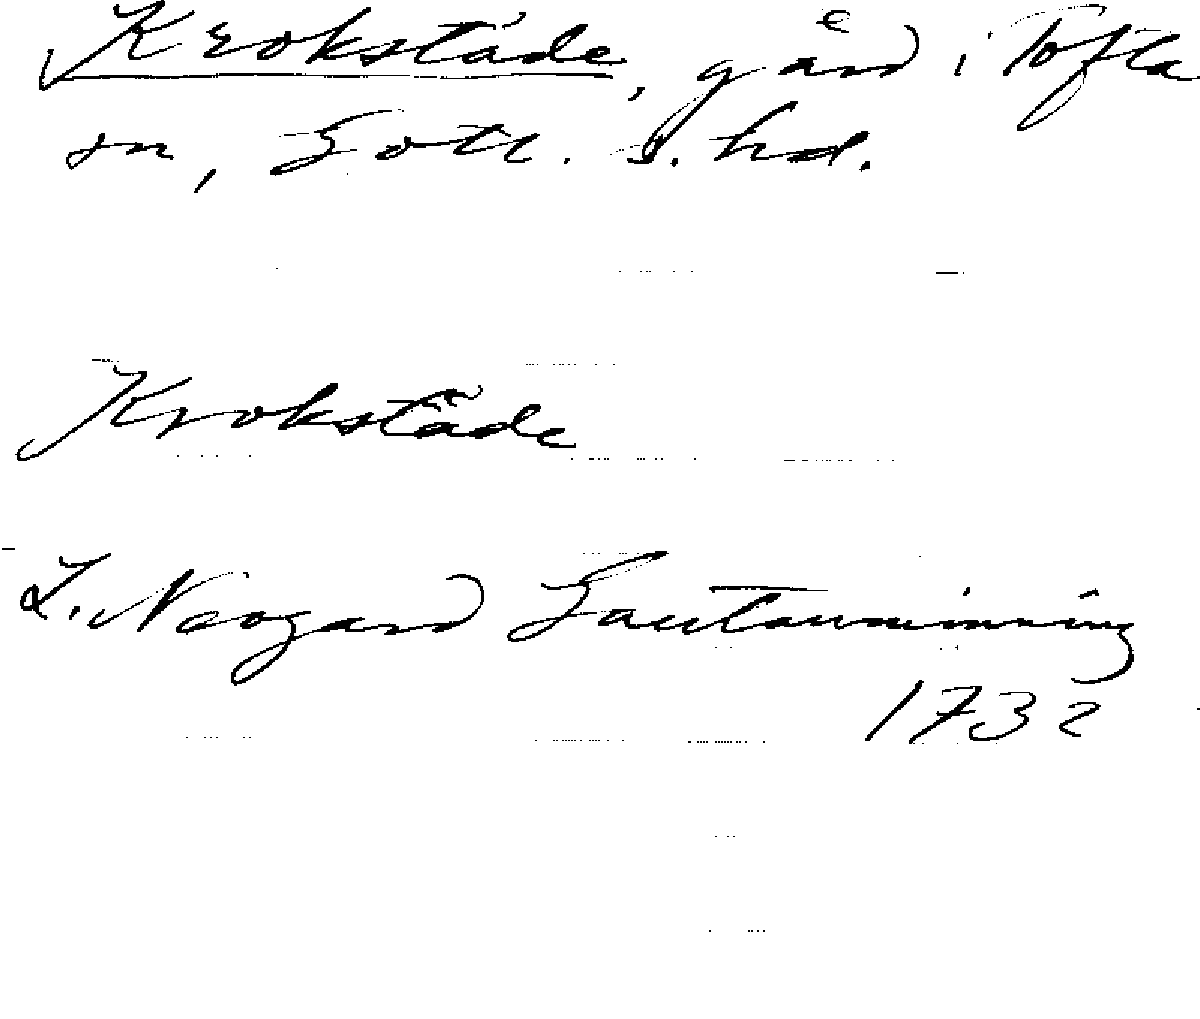 Krokstäde, gård i Tofta
sn, Gotl. S. hd.
Krokstäde
L. Neogard Gautauminning
1732